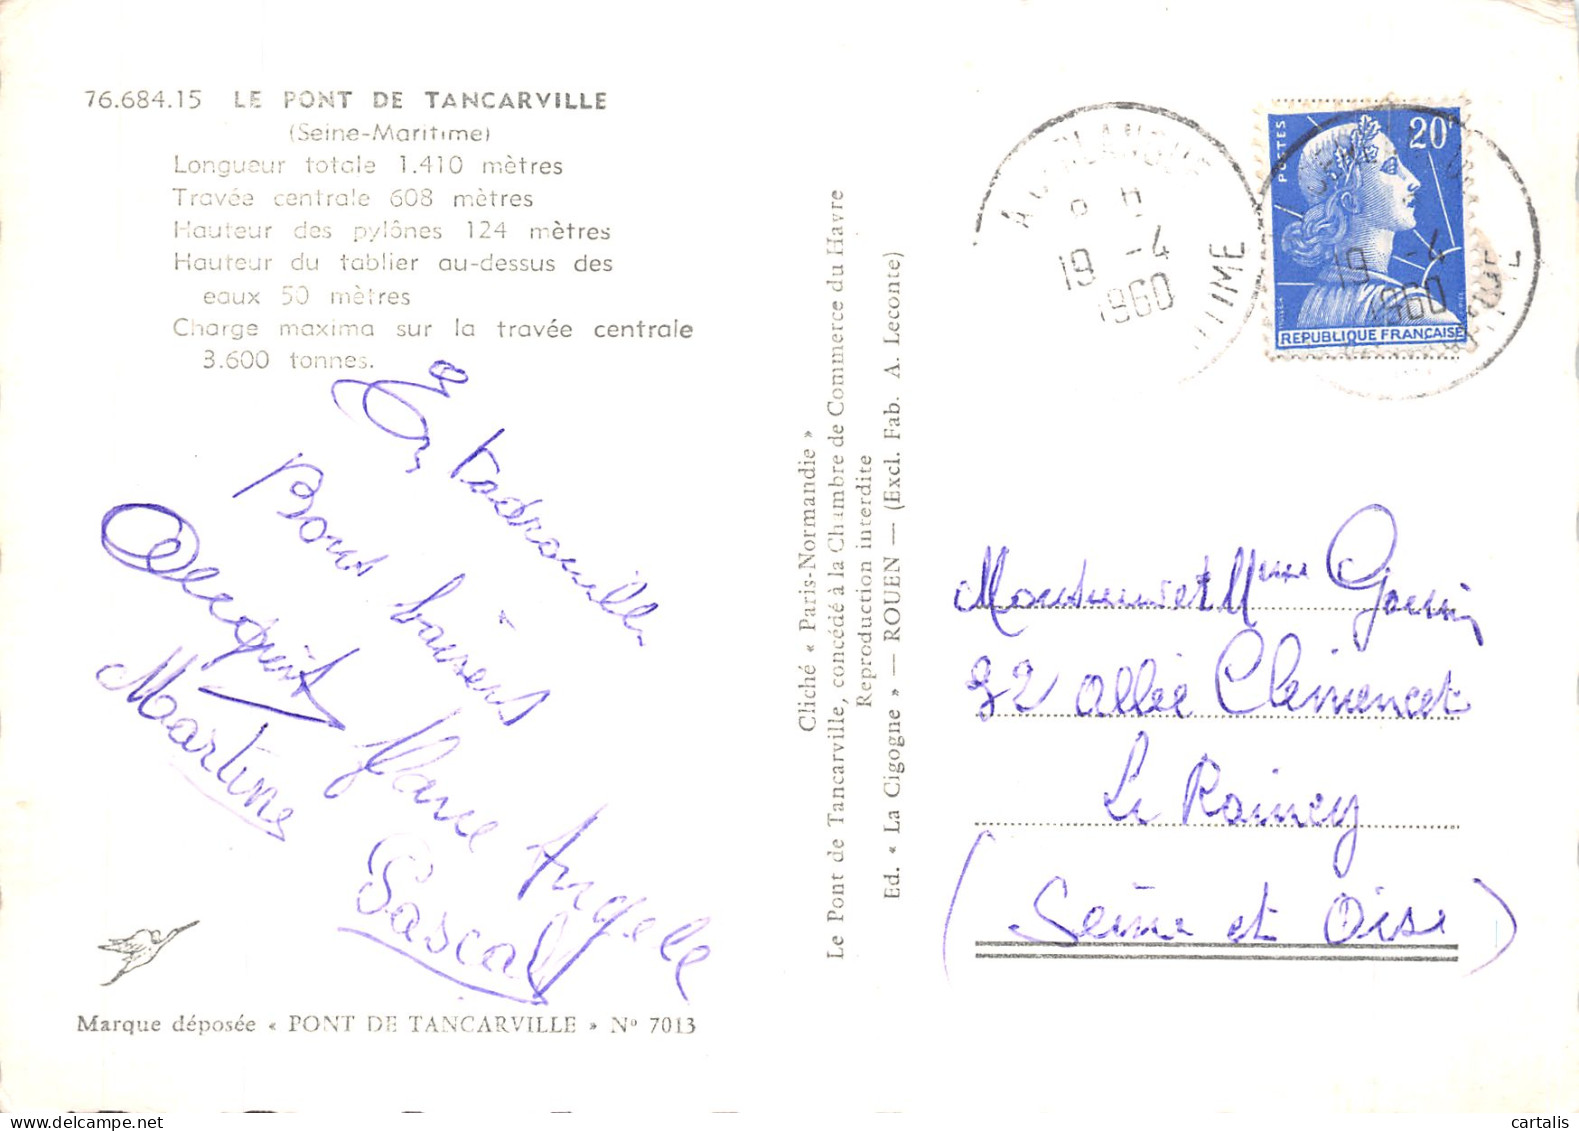 76.684.15 LE PONT DE TANCARVILLE
(Seine-Maritime)
Longueur totale 1.410 mètres
Travée centrale 608 mètres
Hauteur des pylônes 124 mètres
Hauteur du tablier au-dessus des
eaux 50 mètres
Charge maxima sur la travée centrale
3.600 tonnes.
Bons baisers
Martine
Angele
Pascal
Marque déposée « PONT DE TANCARVILLE » Nº 7013
Cliché « Paris-Normandie »
Le Pont de Tancarville, concédé à la Chambre de Commerce du Havre
Reproduction interdite
Ed. « La Cigogne » — ROUEN — (Excl. Fab. A. Leconte)
19 -4
1960
POSTES
20F
REPUBLIQUE FRANÇAISE
19 -4
1960
Monsieur et Mme
32 allée Clemencet
Le Raincy
(Seine et Oise)
cartalis